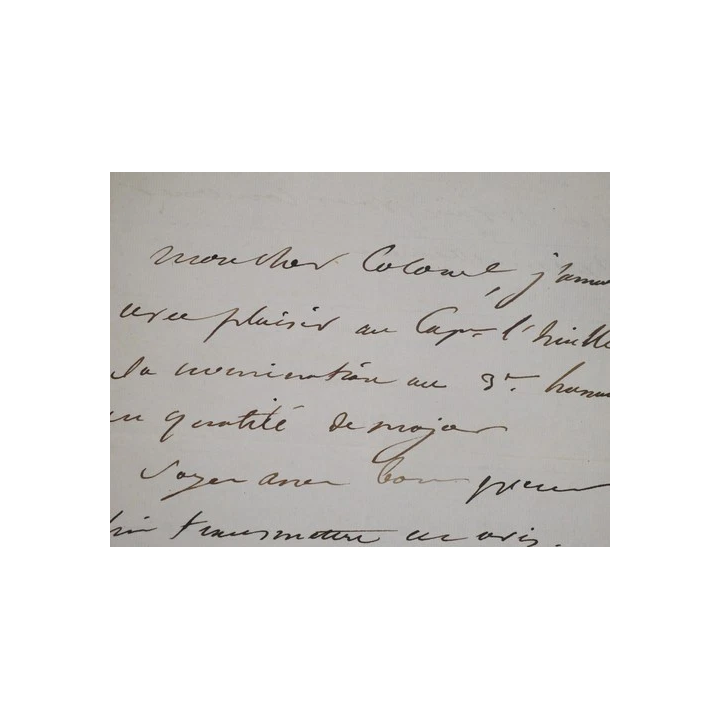 mon cher Colonel, j'annon
avec plaisir au Capne l'huille
la nomination au 3e
en qualité de major
Soyez assez bon pour
lui transmettre cet avis.